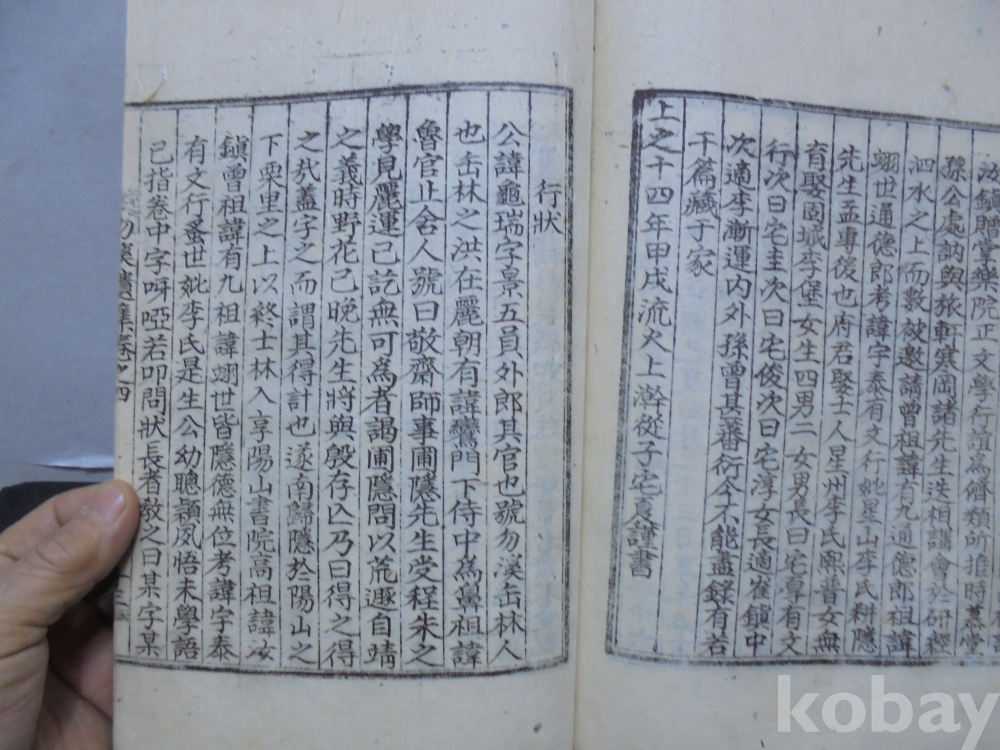 汝鎮贈掌樂院正文學行誼為儕類所推時慕堂
孫公處訥與旅軒寒岡諸先生迭相講會於研經
泗水之上而數被邀請曾祖諱有九通德郎祖諱
翊世通德郎考諱宇泰有文行妣星山李氏耕隱
先生孟專後也府君娶士人星州李氏熙普女無
育娶固城李堡女生四男二女男長曰宅專有文
行次曰宅圭次曰宅俊次曰宅淳女長適崔鎮中
次適李漸運內外孫曾甚蕃衍今不能盡錄有若
干篇藏于家
上之十四年甲戌流火上澣從子宅夏謹書
行狀
公諱龜瑞字景五員外郎其官也號勿溪缶林人
也缶林之洪在麗朝有諱鸞門下侍中為鼻祖諱
魯官止舍人號曰敬齋師事圃隱先生受程朱之
學見麗運已訖無可為者謁圃隱問以荒遯自靖
之義時野花已晚先生將與殷存亾乃曰得之得
之㢤蓋字之而謂其得計也遂南歸隱於陽山之
下栗里之上以終士林入享陽山書院高祖諱汝
鎮曾祖諱有九祖諱翊世皆隱德無位考諱宇泰
有文行蚤世妣李氏是生公幼聰穎夙悟未學語
已指卷中字呀啞若叩問狀長者敎之曰某字某
勿溪遺集卷之四
kobay